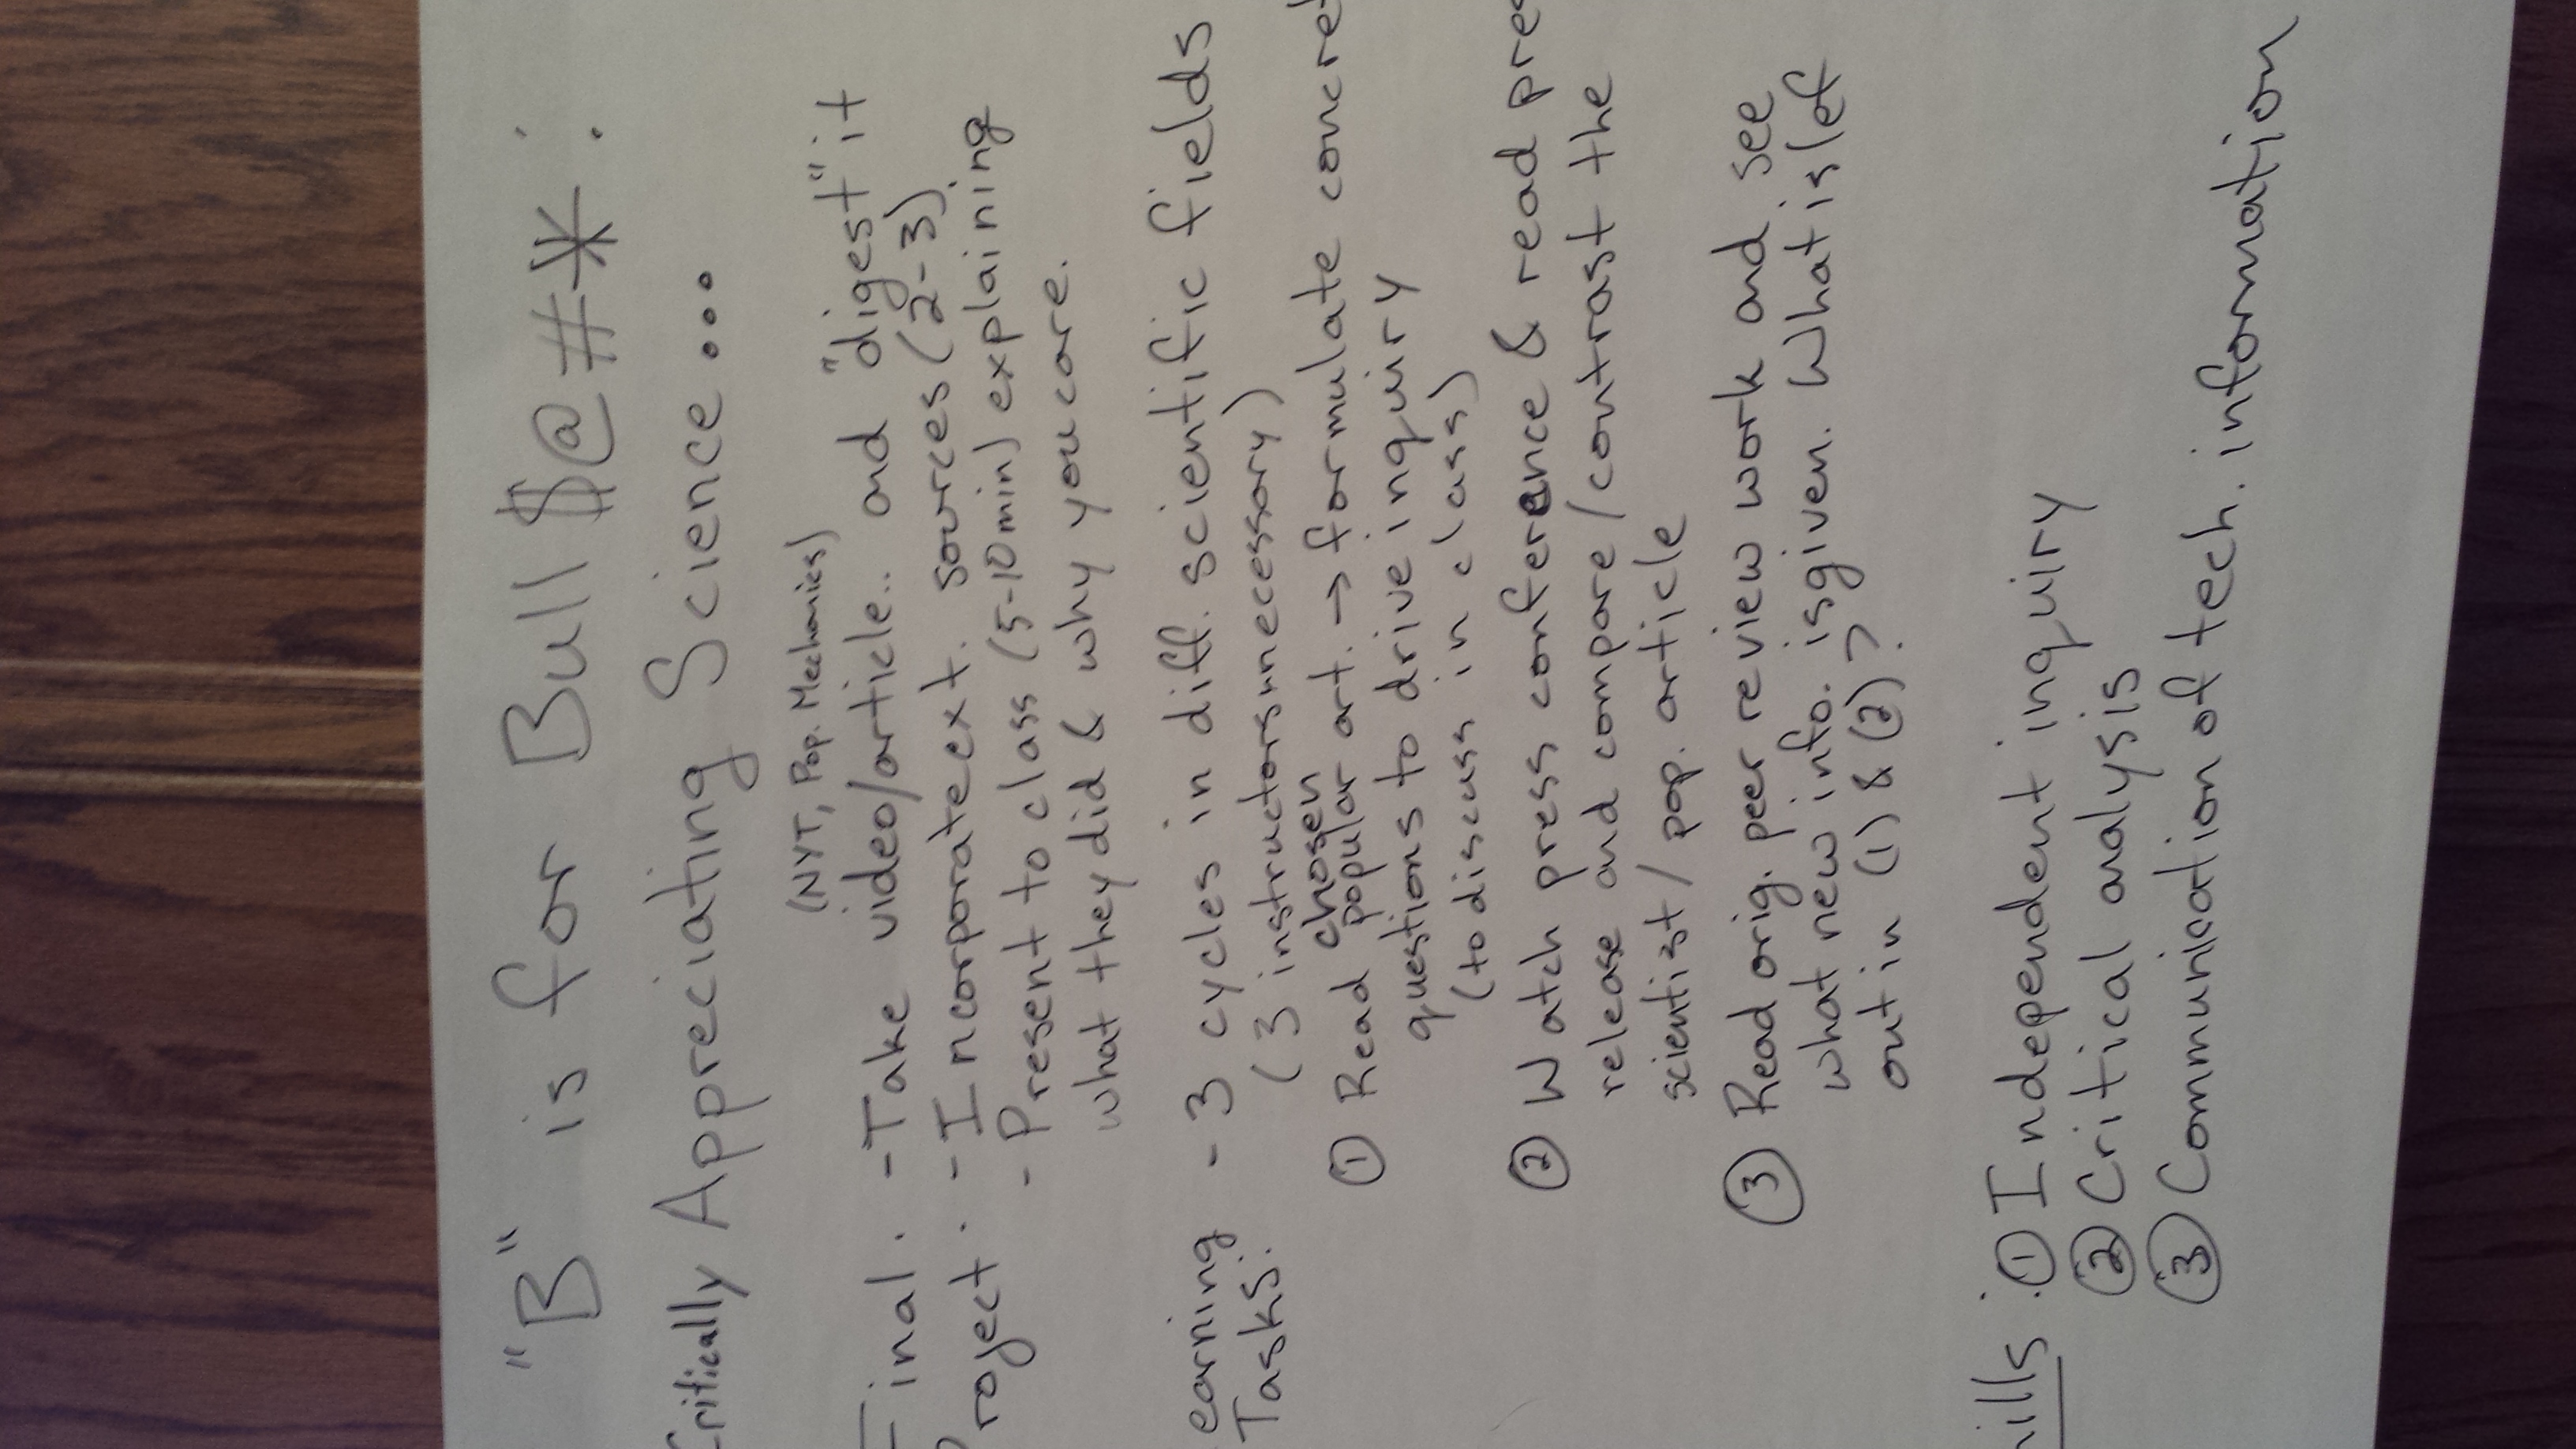 "B" is for Bull$@#*:
Critically Appreciating Science...
(NYT, Pop. Mechanics)
Final - Take video/article.. and "digest" it
- Incorporate ext. sources (2-3).
Project: - Present to class (5-10 min) explaining
what they did & why you care.
earning - 3 cycles in diff. scientific fields
Tasks: (3 instructors unnecessary)
chosen
① Read popular art. → formulate concret
questions to drive inquiry
(to discuss in class)
② Watch press conference & read pres
release and compare/contrast the
scientist/pop. article
③ Read orig. peer review work and see
what new info. is given. What is lef
out in (1) & (2)?
ills: ① Independent inquiry
② Critical analysis
③ Communication of tech. information